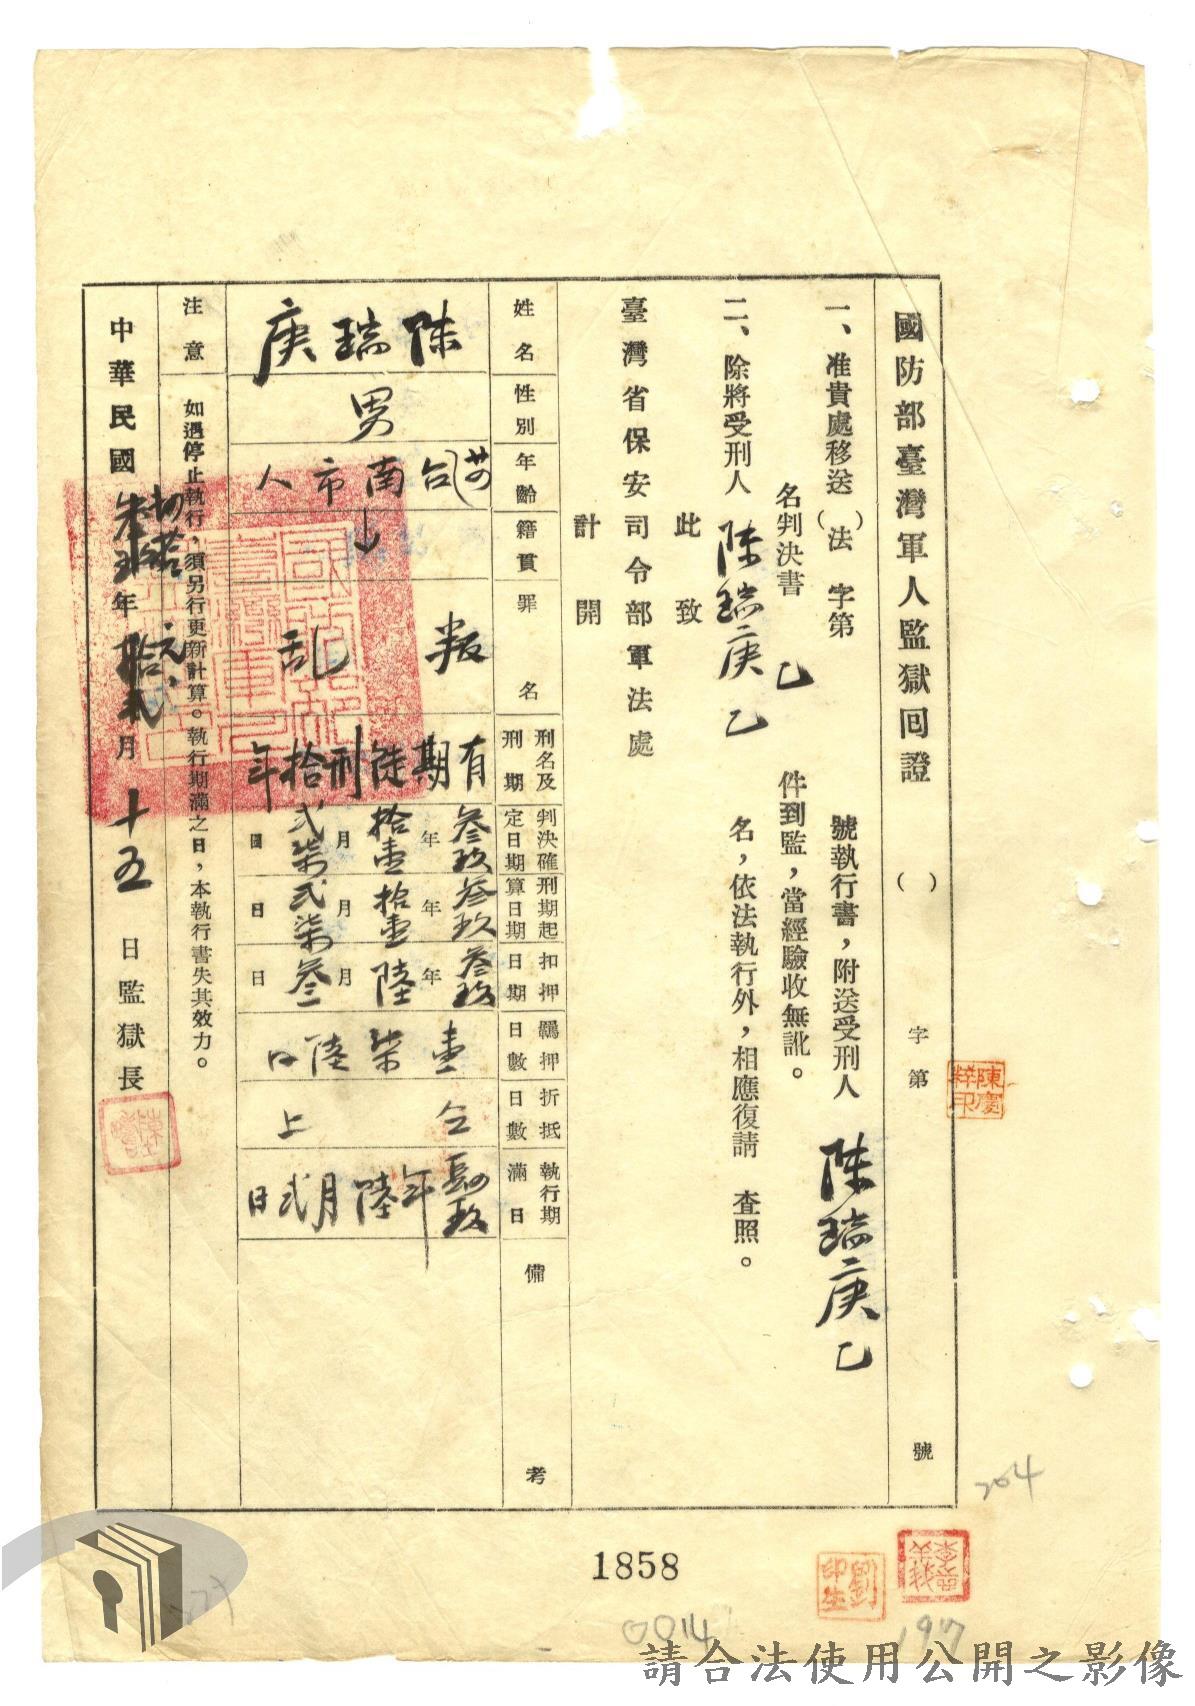 國防部臺灣軍人監獄回證 ( ) 字第 號
一、准貴處移送( )法 字第 號執行書，附送受刑人 陳瑞庚乙
名判決書 乙 件到監，當經驗收無訛。
二、除將受刑人 陳瑞庚 乙 名，依法執行外，相應復請 查照。
此致
臺灣省保安司令部軍法處
計開
姓名 陳瑞庚
性別 男
年齡
籍貫 台南市人
罪名 叛乱
刑名及刑期 有期徒刑拾年
判決確定日期 叁玖年拾壹月弍柒日
刑期起算日期 叁玖年拾壹月弍柒日
扣押日期 叁玖年陸月叁日
羈押日數 壹柒陸日
折抵日數 仝上
執行期滿日 玖年陸月弍日
備考
注意 如遇停止執行，須另行更新計算。執行期滿之日，本執行書失其效力。
中華民國 年 月 十五 日監獄長
陳慶粹印
劉生印
1858
0014
197
204
請合法使用公開之影像